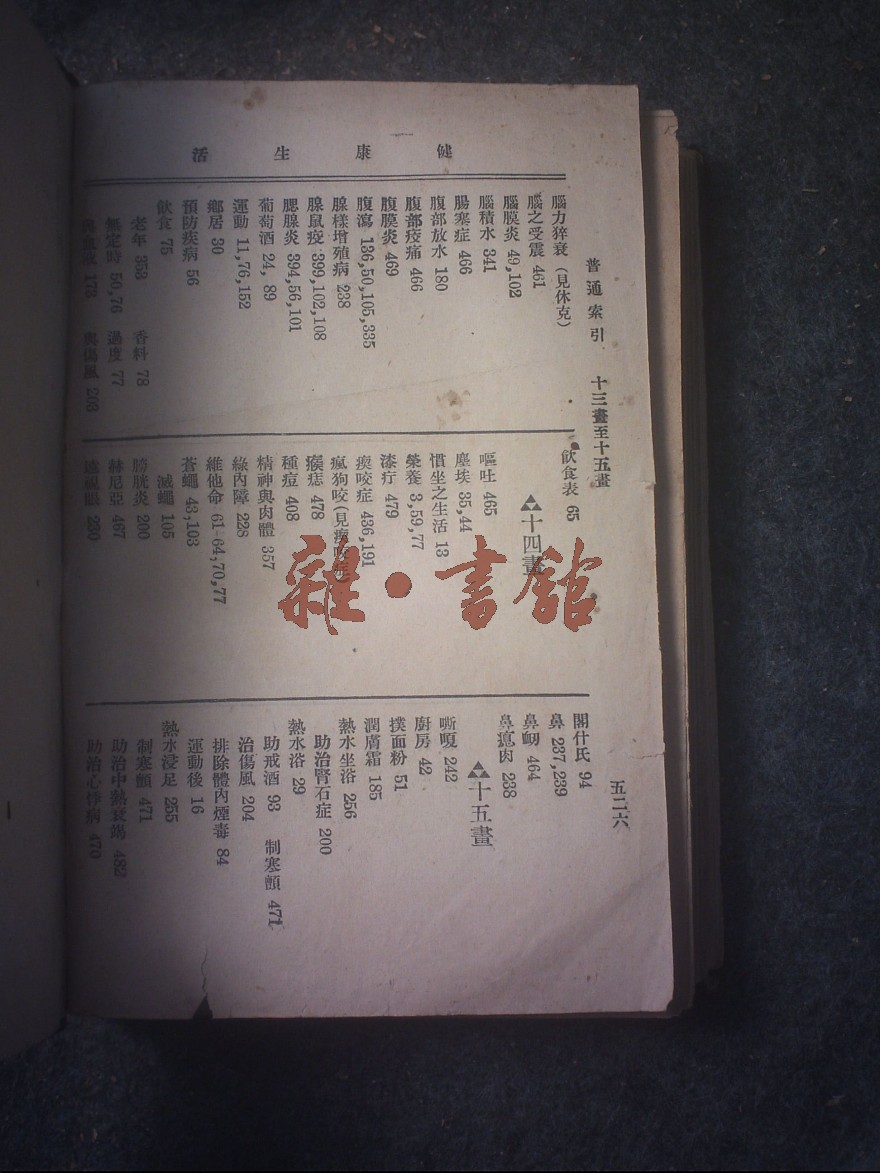 健康生活
普通索引　十三畫至十五畫　五二六
腦力猝衰(見休克)
腦之受震 461
腦膜炎 49,102
腦積水 341
腸塞症 466
腹部放水 180
腹部疫痛 466
腹膜炎 469
腹瀉 136,50,105,335
腺樣增殖病 238
腺鼠疫 399,102,108
腮腺炎 394,56,101
葡萄酒 24, 89
運動 11,76,152
鄉居 30
預防疾病 56
飲食 75
老年 353　香料 78
無定時 50,76　過度 77
與傷風 203
飲食表 65
十四畫
嘔吐 465
塵埃 35,44
慣坐之生活 13
榮養 3,59,77
漆疔 479
瘈咬症 436,191
瘋狗咬(見瘈咬症)
瘊痣 478
種痘 408
精神與肉體 357
綠內障 228
維他命 61-64,70,77
蒼蠅 43,103
滅蠅 105
膀胱炎 200
赫尼亞 467
遠視眼 230
閣什氏 94
鼻 237,239
鼻衂 464
鼻瘜肉 238
十五畫
嘶嗄 242
廚房 42
撲面粉 51
潤膚霜 185
熱水坐浴 256
助治腎石症 200
熱水浴 29
助戒酒 93　制寒顫 471
治傷風 204
排除體內煙毒 84
運動後 16
熱水浸足 255
制寒顫 471
助治中熱衰竭 482
助治心悸病 470
雜·書館